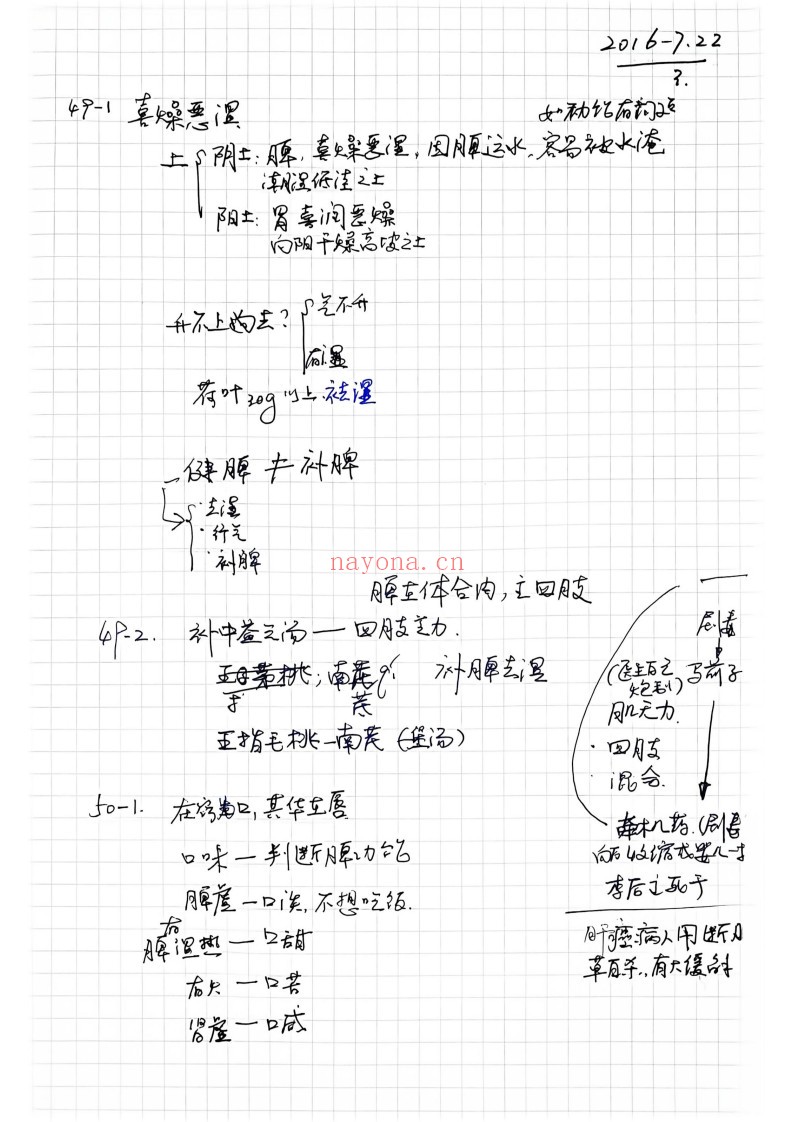 2016-7.22
3.
49-1 喜燥恶湿
如功能有问题
土 阴土：脾，喜燥恶湿，因脾运水，容易被水淹
潮湿低洼之土
阳土：胃喜润恶燥
向阳干燥高坡之土
升不上去？ 气不升
有湿
荷叶20g以上 祛湿
健脾≠补脾
·去湿
·行气
·补脾
nayona.cn
脾主体合肉，主四肢
49-2. 补中益气汤—四肢乏力.
南芪 补脾去湿
芪
五指毛桃—南芪（煲汤）
剧毒
马前子
肌无力.
·四肢
·混合.
50-1. 在窍口，其华在唇
口味—判断脾功能
脾虚—口淡，不想吃饭.
有
脾湿热—口甜
有火—口苦
肾虚—口咸
牵机药.（剧毒
李后主死于
肝癌病人用断肠
草自杀..有大缓解